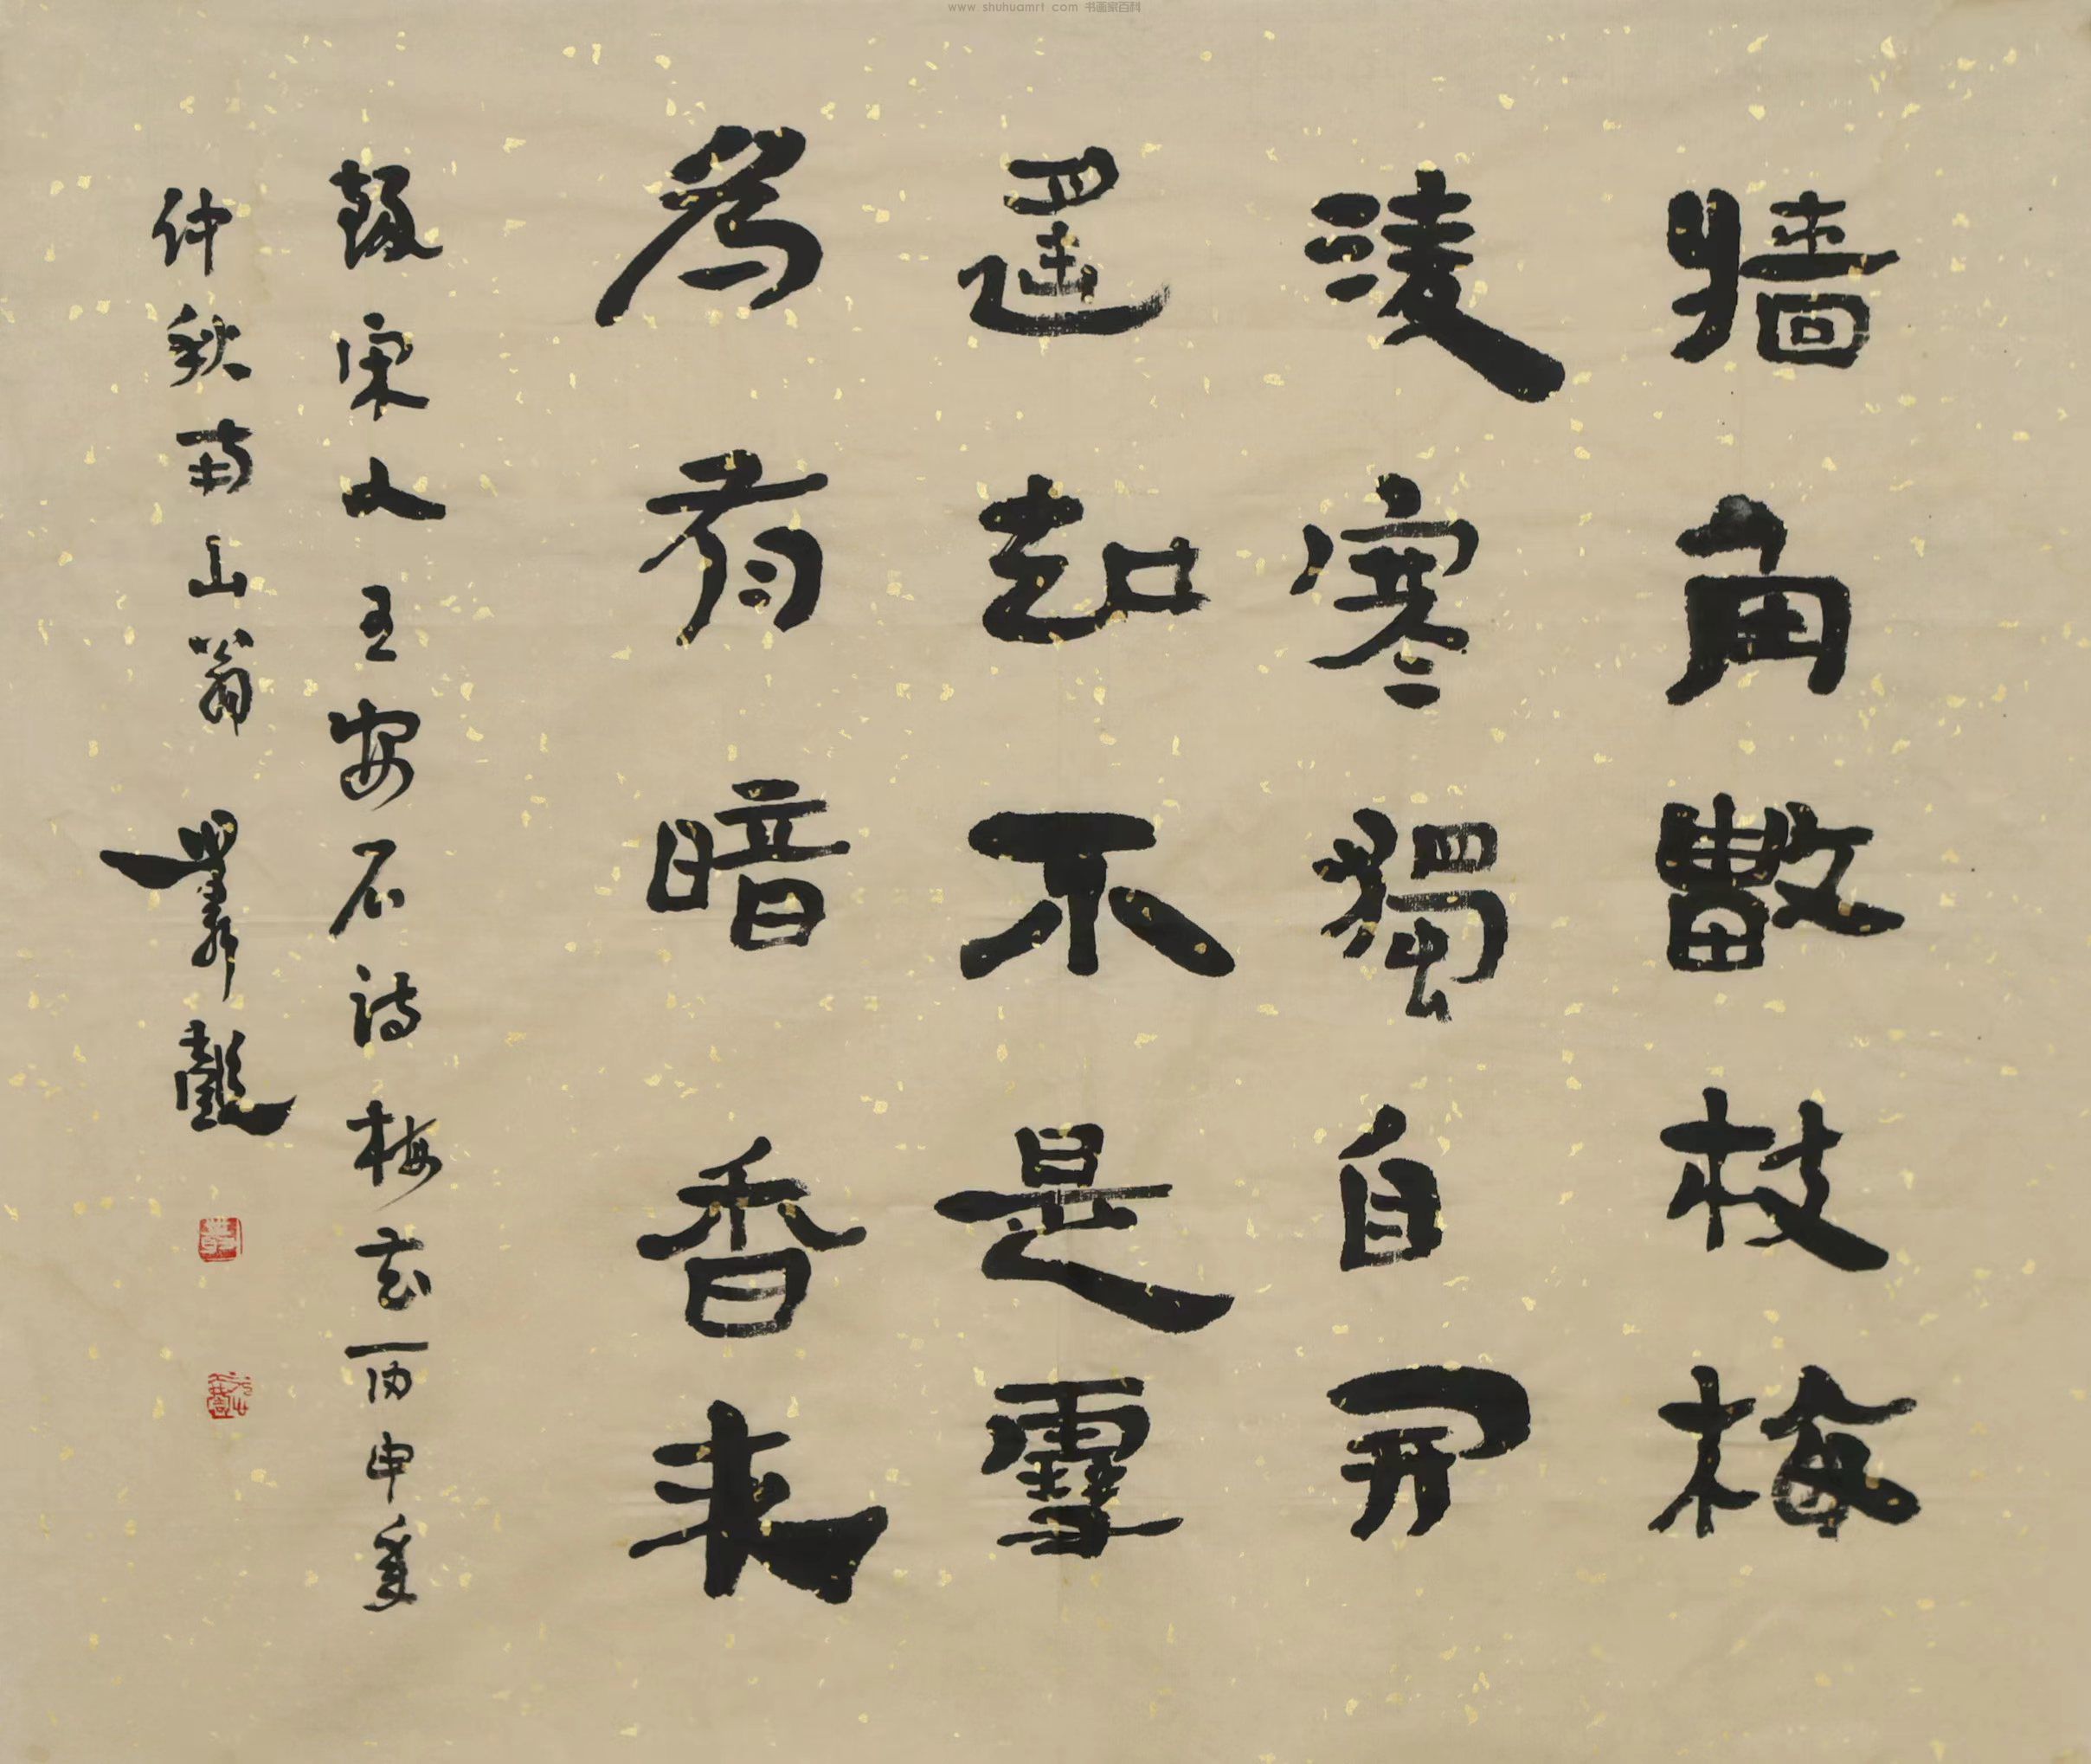 牆角數枝梅
淩寒獨自開
遥知不是雪
為有暗香来
錄宋人王安石诗梅花丙申年
仲秋南山翁
www.shuhuamrt.com 书画家百科